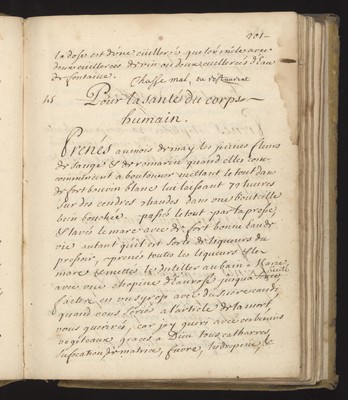 201
la dose est d'une cuillerée que l'on mêle avec
deux cuillerées de vin ou deux cuillerées d'Eau
de fontaine. Chasse mal, ou restaurant
45 Pour la santé du corps
humain.
Prenés au mois de may les jeunes fleurs
de sauge et de romarin quand elles com-
commencent a boutonner mettant le tout dans
de fort bon vin blanc lui laissant 72 heures
sur des cendres chaudes dans une bouteille
bien bouchée. passés le tout par la presse,
et lavés le marc avec de fort bonne eau de
vie autant qu'il est sorti de liqueurs du
pressoir, prenés toutes les liqueurs et le
marc et mettés le distiller au bain Marie
avec une chopine d'eau rose jusqu'a siccité
faites en un syrop avec du sucre candi,
quand vous seriés a l'article de la mort
vous gueririés, car j'ay gueri avec ces benins
vegetaux graces a Dieu tous catharres,
suffocation, de matrice, fievre, hydropisie, &